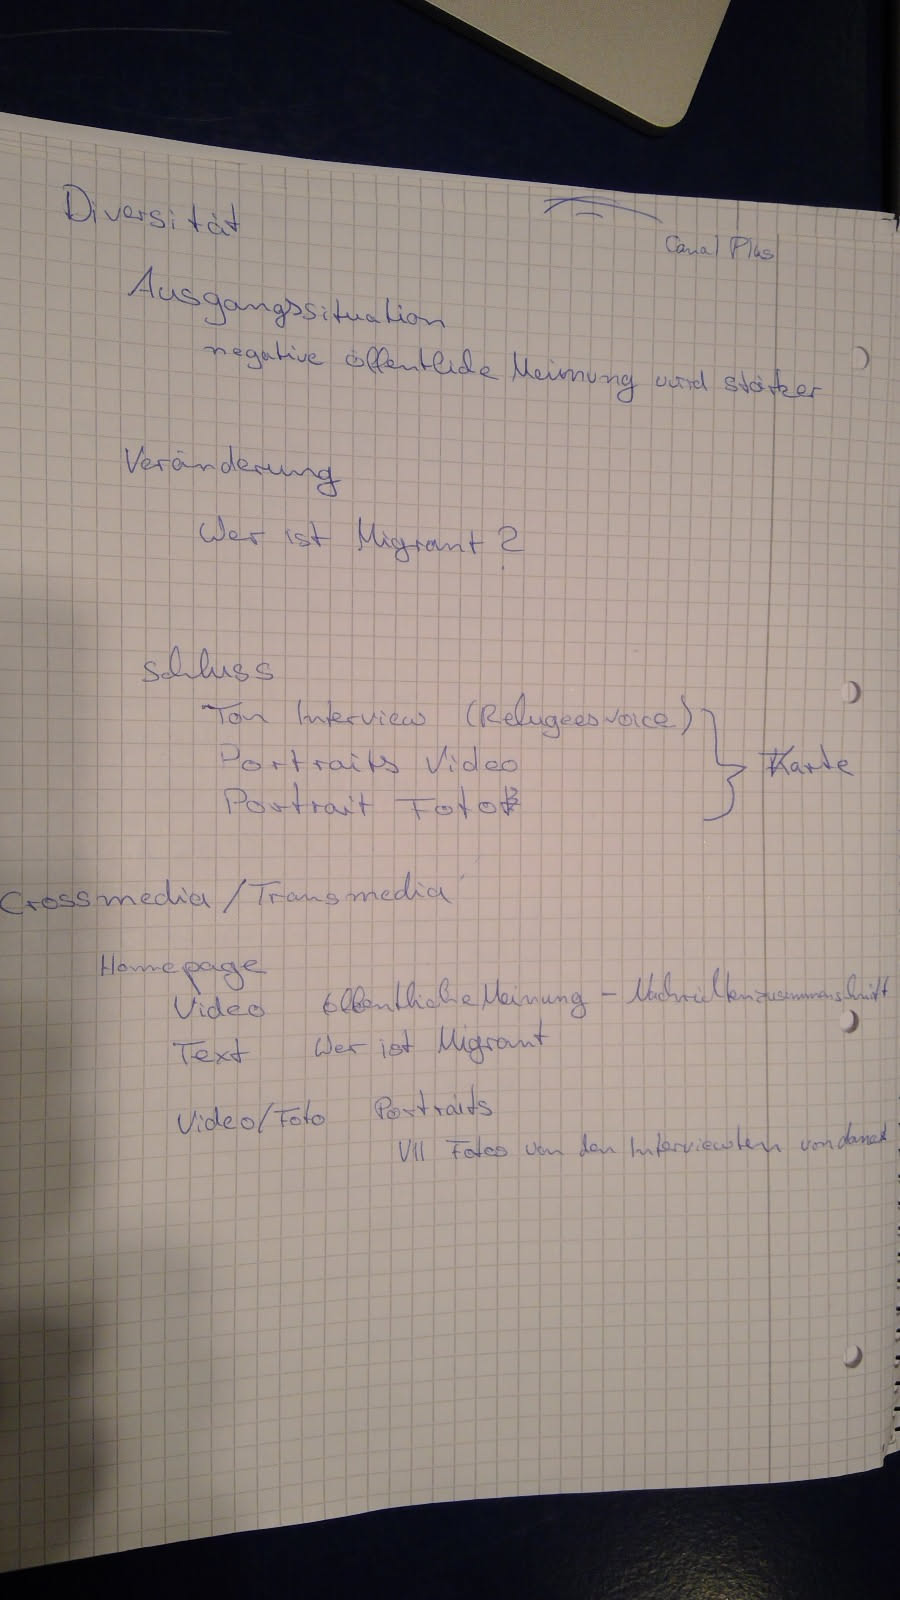 Diversität
Canal Plus
Ausgangssituation
negative öffentliche Meinung wird stärker
Veränderung
Wer ist Migrant?
Schluss
Ton Interview (Refugeesvoice)
Portraits Video
Karte
Portrait Foto
Crossmedia/Transmedia
Homepage
Video öffentliche Meinung - Nachrichtenzusammenschnitt
Text Wer ist Migrant
Video/Foto Portraits
Fotos von den Interviewten von